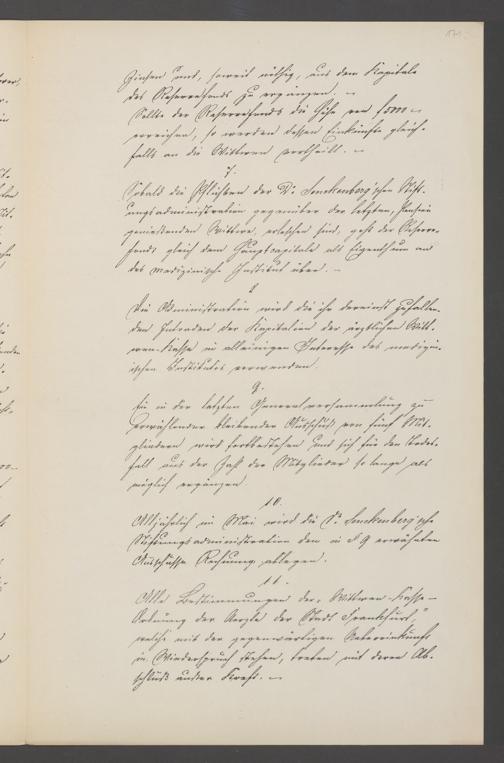 Zinsen und, soweit nöthig, aus dem Kapitale
des Reservefonds zu ergänzen. –
Sollte der Reservefonds die Höhe von
erreichen, so werden dessen Einkünfte gleich-
falls an die Wittwen vertheilt. –
7.
Sobald die Pflichten der Dr. Senckenberg'schen Stift-
ungsadministration gegenüber der letzten, Pension
genießenden Wittwe, erloschen sind, geht der Reserve-
fonds gleich dem Hauptcapitale als Eigenthum an
das medizinische Institut über. –
8
Die Administration wird die ihr dereinst zufallen-
den Intraden der Kapitalien der ärztlichen Witt-
wen-Kasse im alleinigen Interesse des medizin-
ischen Institutes verwenden.
9.
Ein in der letzten Generalversammlung zu
erwählender bleibender Ausschuß von fünf Mit-
gliedern wird fortbestehen und sich für den Todes-
fall aus der Zahl der Mitglieder so lange als
möglich ergänzen
10.
Alljährlich im Mai wird die Dr. Senckenberg'sche
Stiftungsadministration dem in § 9 erwähnten
Ausschusse Rechnung ablegen.
11.
Alle Bestimmungen der „Wittwen-Kasse-
Ordnung der Aerzte der Stadt Frankfurt,"
welche mit der gegenwärtigen Uebereinkunft
in Widerspruch stehen, treten mit deren Ab-
schluß außer Kraft. –